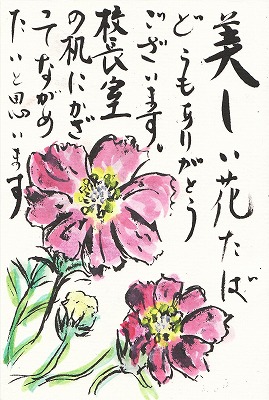 美しい花たば
どうもありがとう
ございます。
校長室
の机にかざ
ってながめ
たいと思います